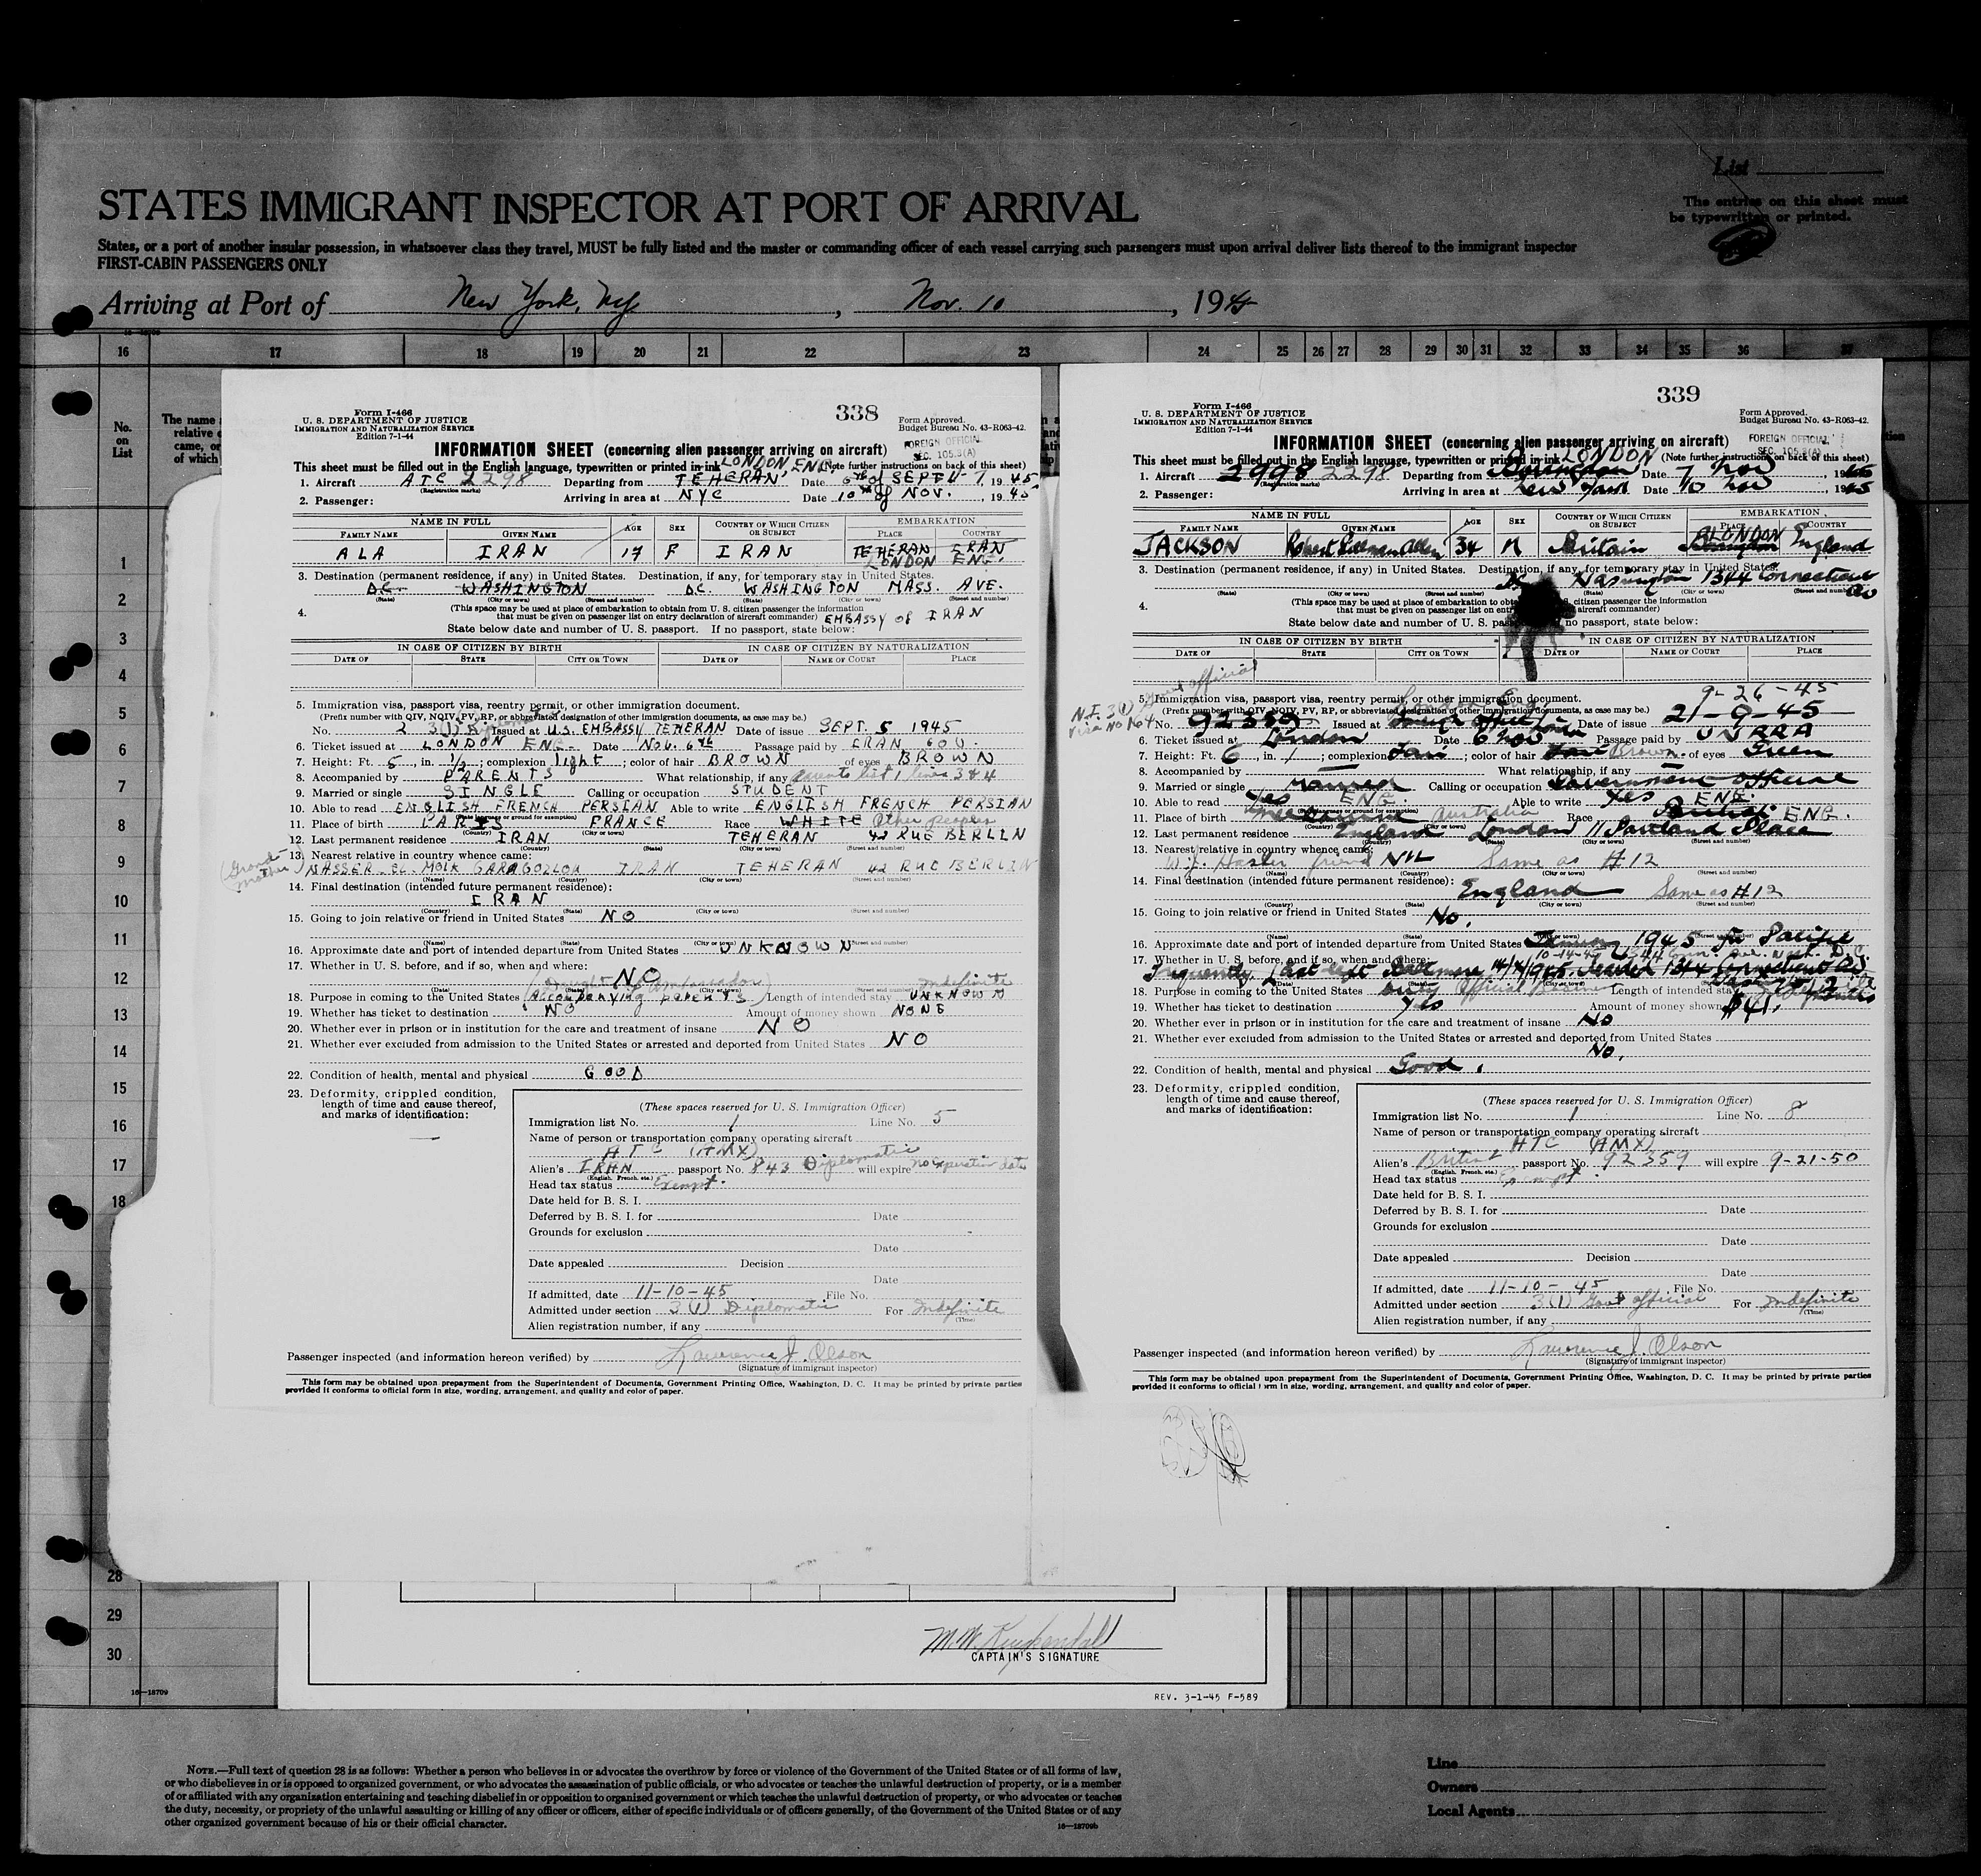 List
STATES IMMIGRANT INSPECTOR AT PORT OF ARRIVAL
The entries on this sheet must
be typewritten or printed.
States, or a port of another insular possession, in whatsoever class they travel, MUST be fully listed and the master or commanding officer of each vessel carrying such passengers must upon arrival deliver lists thereof to the immigrant inspector
FIRST-CABIN PASSENGERS ONLY
Arriving at Port of New York, NY, Nov. 10, 1945
16 17 18 19 20 21 22 23 24 25 26 27 28 29 30 31 32 33 34 35 36 37
No.
on
List
The name
relative
came, or
of which
1
2
3
4
5
6
7
8
9
10
11
12
13
14
15
16
17
18
338
Form I-466
U. S. DEPARTMENT OF JUSTICE
IMMIGRATION AND NATURALIZATION SERVICE
Edition 7-1-44
Form Approved.
Budget Bureau No. 43-R063-42.
INFORMATION SHEET (concerning alien passenger arriving on aircraft)
FOREIGN OFFICIAL
SEC. 105.3(A)
This sheet must be filled out in the English language, typewritten or printed in ink (Note further instructions on back of this sheet)
LONDON, ENG.
1. Aircraft ATC 2298 Departing from TEHERAN Date 6th of SEPT 7, 1945
(Registration marks)
2. Passenger: Arriving in area at NYC Date 10th of NOV., 1945
NAME IN FULL AGE SEX COUNTRY OF WHICH CITIZEN OR SUBJECT EMBARKATION
FAMILY NAME GIVEN NAME PLACE COUNTRY
ALA IRAN 17 F IRAN TEHERAN IRAN
LONDON ENG.
3. Destination (permanent residence, if any) in United States. Destination, if any, for temporary stay in United States.
D.C. WASHINGTON D.C. WASHINGTON MASS. AVE.
(State) (City or town) (Street and number) (State) (City or town) (Street and number)
4. (This space may be used at place of embarkation to obtain from U. S. citizen passenger the information
that must be given on passenger list on entry declaration of aircraft commander) EMBASSY OF IRAN
State below date and number of U. S. passport. If no passport, state below:
IN CASE OF CITIZEN BY BIRTH IN CASE OF CITIZEN BY NATURALIZATION
DATE OF STATE CITY OR TOWN DATE OF NAME OF COURT PLACE
5. Immigration visa, passport visa, reentry permit, or other immigration document.
(Prefix number with QIV, NQIV, PV, RP, or abbreviated designation of other immigration documents, as case may be.)
No. 2 3(1) Diplomatic Issued at U.S. EMBASSY TEHERAN Date of issue SEPT. 5 1945
6. Ticket issued at LONDON ENG. Date Nov. 6th Passage paid by IRAN GOV.
7. Height: Ft. 5, in. 1/2; complexion light; color of hair BROWN of eyes BROWN
8. Accompanied by PARENTS What relationship, if any parents list 1 lines 3 & 4
9. Married or single SINGLE Calling or occupation STUDENT
10. Able to read ENGLISH FRENCH PERSIAN Able to write ENGLISH FRENCH PERSIAN
(State language or ground for exemption)
11. Place of birth PARIS FRANCE Race WHITE Other peoples
(Country) (City or town)
12. Last permanent residence IRAN TEHERAN 42 RUE BERLIN
(Country) (State) (City or town) (Street and number)
13. Nearest relative in country whence came:
(Grand mother) NASSER-OL-MOLK GARAGOZLOU IRAN TEHERAN 42 RUE BERLIN
(Name) (Country) (City or town) (Street and number)
14. Final destination (intended future permanent residence):
IRAN
(Country) (State) (City or town) (Street and number)
15. Going to join relative or friend in United States NO
(Name) (State) (City or town) (Street and number)
16. Approximate date and port of intended departure from United States UNKNOWN
17. Whether in U. S. before, and if so, when and where:
NO
(Date) (State) (City or town) (Street and number)
18. Purpose in coming to the United States (Accompanying parents) Length of intended stay UNKNOWN Indefinite
19. Whether has ticket to destination NO Amount of money shown NONE
20. Whether ever in prison or in institution for the care and treatment of insane NO
21. Whether ever excluded from admission to the United States or arrested and deported from United States NO
22. Condition of health, mental and physical GOOD
23. Deformity, crippled condition,
length of time and cause thereof,
and marks of identification:
(These spaces reserved for U. S. Immigration Officer)
Immigration list No. 1 Line No. 5
Name of person or transportation company operating aircraft
ATC (AMX)
Alien's IRAN passport No. 843 Diplomatic will expire no expiration date
(English, French, etc.)
Head tax status Exempt.
Date held for B. S. I.
Deferred by B. S. I. for Date
Grounds for exclusion
Date
Date appealed Decision
Date
If admitted, date 11-10-45 File No.
Admitted under section 3(1) Diplomatic For Indefinite
(Time)
Alien registration number, if any
Passenger inspected (and information hereon verified) by Lawrence J. Olson
(Signature of immigrant inspector)
This form may be obtained upon prepayment from the Superintendent of Documents, Government Printing Office, Washington, D. C. It may be printed by private parties
provided it conforms to official form in size, wording, arrangement, and quality and color of paper.
339
Form I-466
U. S. DEPARTMENT OF JUSTICE
IMMIGRATION AND NATURALIZATION SERVICE
Edition 7-1-44
Form Approved.
Budget Bureau No. 43-R063-42.
INFORMATION SHEET (concerning alien passenger arriving on aircraft)
FOREIGN OFFICIAL
SEC. 105.3(A)
This sheet must be filled out in the English language, typewritten or printed in ink (Note further instructions on back of this sheet)
LONDON
1. Aircraft 2998 2298 Departing from Bovingdon Date 7 Nov, 1945
(Registration marks)
2. Passenger: Arriving in area at New York Date 10 Nov, 1945
NAME IN FULL AGE SEX COUNTRY OF WHICH CITIZEN OR SUBJECT EMBARKATION
FAMILY NAME GIVEN NAME PLACE COUNTRY
LONDON
JACKSON Robert 34 M Britain Bovingdon England
3. Destination (permanent residence, if any) in United States. Destination, if any, for temporary stay in United States.
DC Washington 1344 Connecticut Av
(State) (City or town) (Street and number) (City or town) (Street and number)
4. (This space may be used at place of embarkation to citizen passenger the information
that must be given on passenger list on aircraft commander)
State below date and number of U. S. no passport, state below:
IN CASE OF CITIZEN BY BIRTH IN CASE OF CITIZEN BY NATURALIZATION
DATE OF STATE CITY OR TOWN DATE OF NAME OF COURT PLACE
official
5. Immigration visa, passport visa, reentry permit, or other immigration document. 9-26-45
(Prefix number with QIV, NQIV, PV, RP, or abbreviated designation of other immigration documents, as case may be.)
N.I. 3(1)
Visa No 164
No. 92359 Issued at Foreign Office London Date of issue 21-9-45
6. Ticket issued at London Date 6 Nov Passage paid by UNRRA
7. Height: Ft. 6, in. 1; complexion Fair; color of hair Fair Brown of eyes Green
8. Accompanied by What relationship, if any
9. Married or single Married Calling or occupation Government Official
10. Able to read Yes ENG. Able to write Yes ENG.
11. Place of birth Melbourne Australia Race British ENG.
12. Last permanent residence England London 11 Portland Place
13. Nearest relative in country whence came:
friend NIL Same as #12
(Name) (Country) (City or town) (Street and number)
14. Final destination (intended future permanent residence): England Same as #12
(Country) (State) (City or town) (Street and number)
15. Going to join relative or friend in United States No.
(Name) (State) (Street and number)
16. Approximate date and port of intended departure from United States January 1945 for Pacific
17. Whether in U. S. before, and if so, when and where:
Frequently, last left Baltimore 1344 Connecticut Av
18. Purpose in coming to the United States Duty Official Business Length of intended stay 2 months
19. Whether has ticket to destination Yes Amount of money shown $41.
20. Whether ever in prison or in institution for the care and treatment of insane No
21. Whether ever excluded from admission to the United States or arrested and deported from United States
No.
22. Condition of health, mental and physical Good.
23. Deformity, crippled condition,
length of time and cause thereof,
and marks of identification:
(These spaces reserved for U. S. Immigration Officer)
Immigration list No. 1 Line No. 8
Name of person or transportation company operating aircraft
ATC (AMX)
Alien's British passport No. 92359 will expire 9-21-50
(English, French, etc.)
Head tax status Exempt.
Date held for B. S. I.
Deferred by B. S. I. for Date
Grounds for exclusion
Date
Date appealed Decision
Date
If admitted, date 11-10-45 File No.
Admitted under section 3(1) Govt official For Indefinite
(Time)
Alien registration number, if any
Passenger inspected (and information hereon verified) by Lawrence J. Olson
(Signature of immigrant inspector)
This form may be obtained upon prepayment from the Superintendent of Documents, Government Printing Office, Washington, D. C. It may be printed by private parties
provided it conforms to official form in size, wording, arrangement, and quality and color of paper.
28
29
30
M.W. Kuykendall
CAPTAIN'S SIGNATURE
REV. 3-1-45 F-589
16—18709
NOTE.—Full text of question 28 is as follows: Whether a person who believes in or advocates the overthrow by force or violence of the Government of the United States or of all forms of law,
or who disbelieves in or is opposed to organized government, or who advocates the assassination of public officials, or who advocates or teaches the unlawful destruction of property, or is a member
of or affiliated with any organization entertaining and teaching disbelief in or opposition to organized government or which teaches the unlawful destruction of property, or who advocates or teaches
the duty, necessity, or propriety of the unlawful assaulting or killing of any officer or officers, either of specific individuals or of officers generally, of the Government of the United States or of any
other organized government because of his or their official character.
16—18709b
Line
Owners
Local Agents